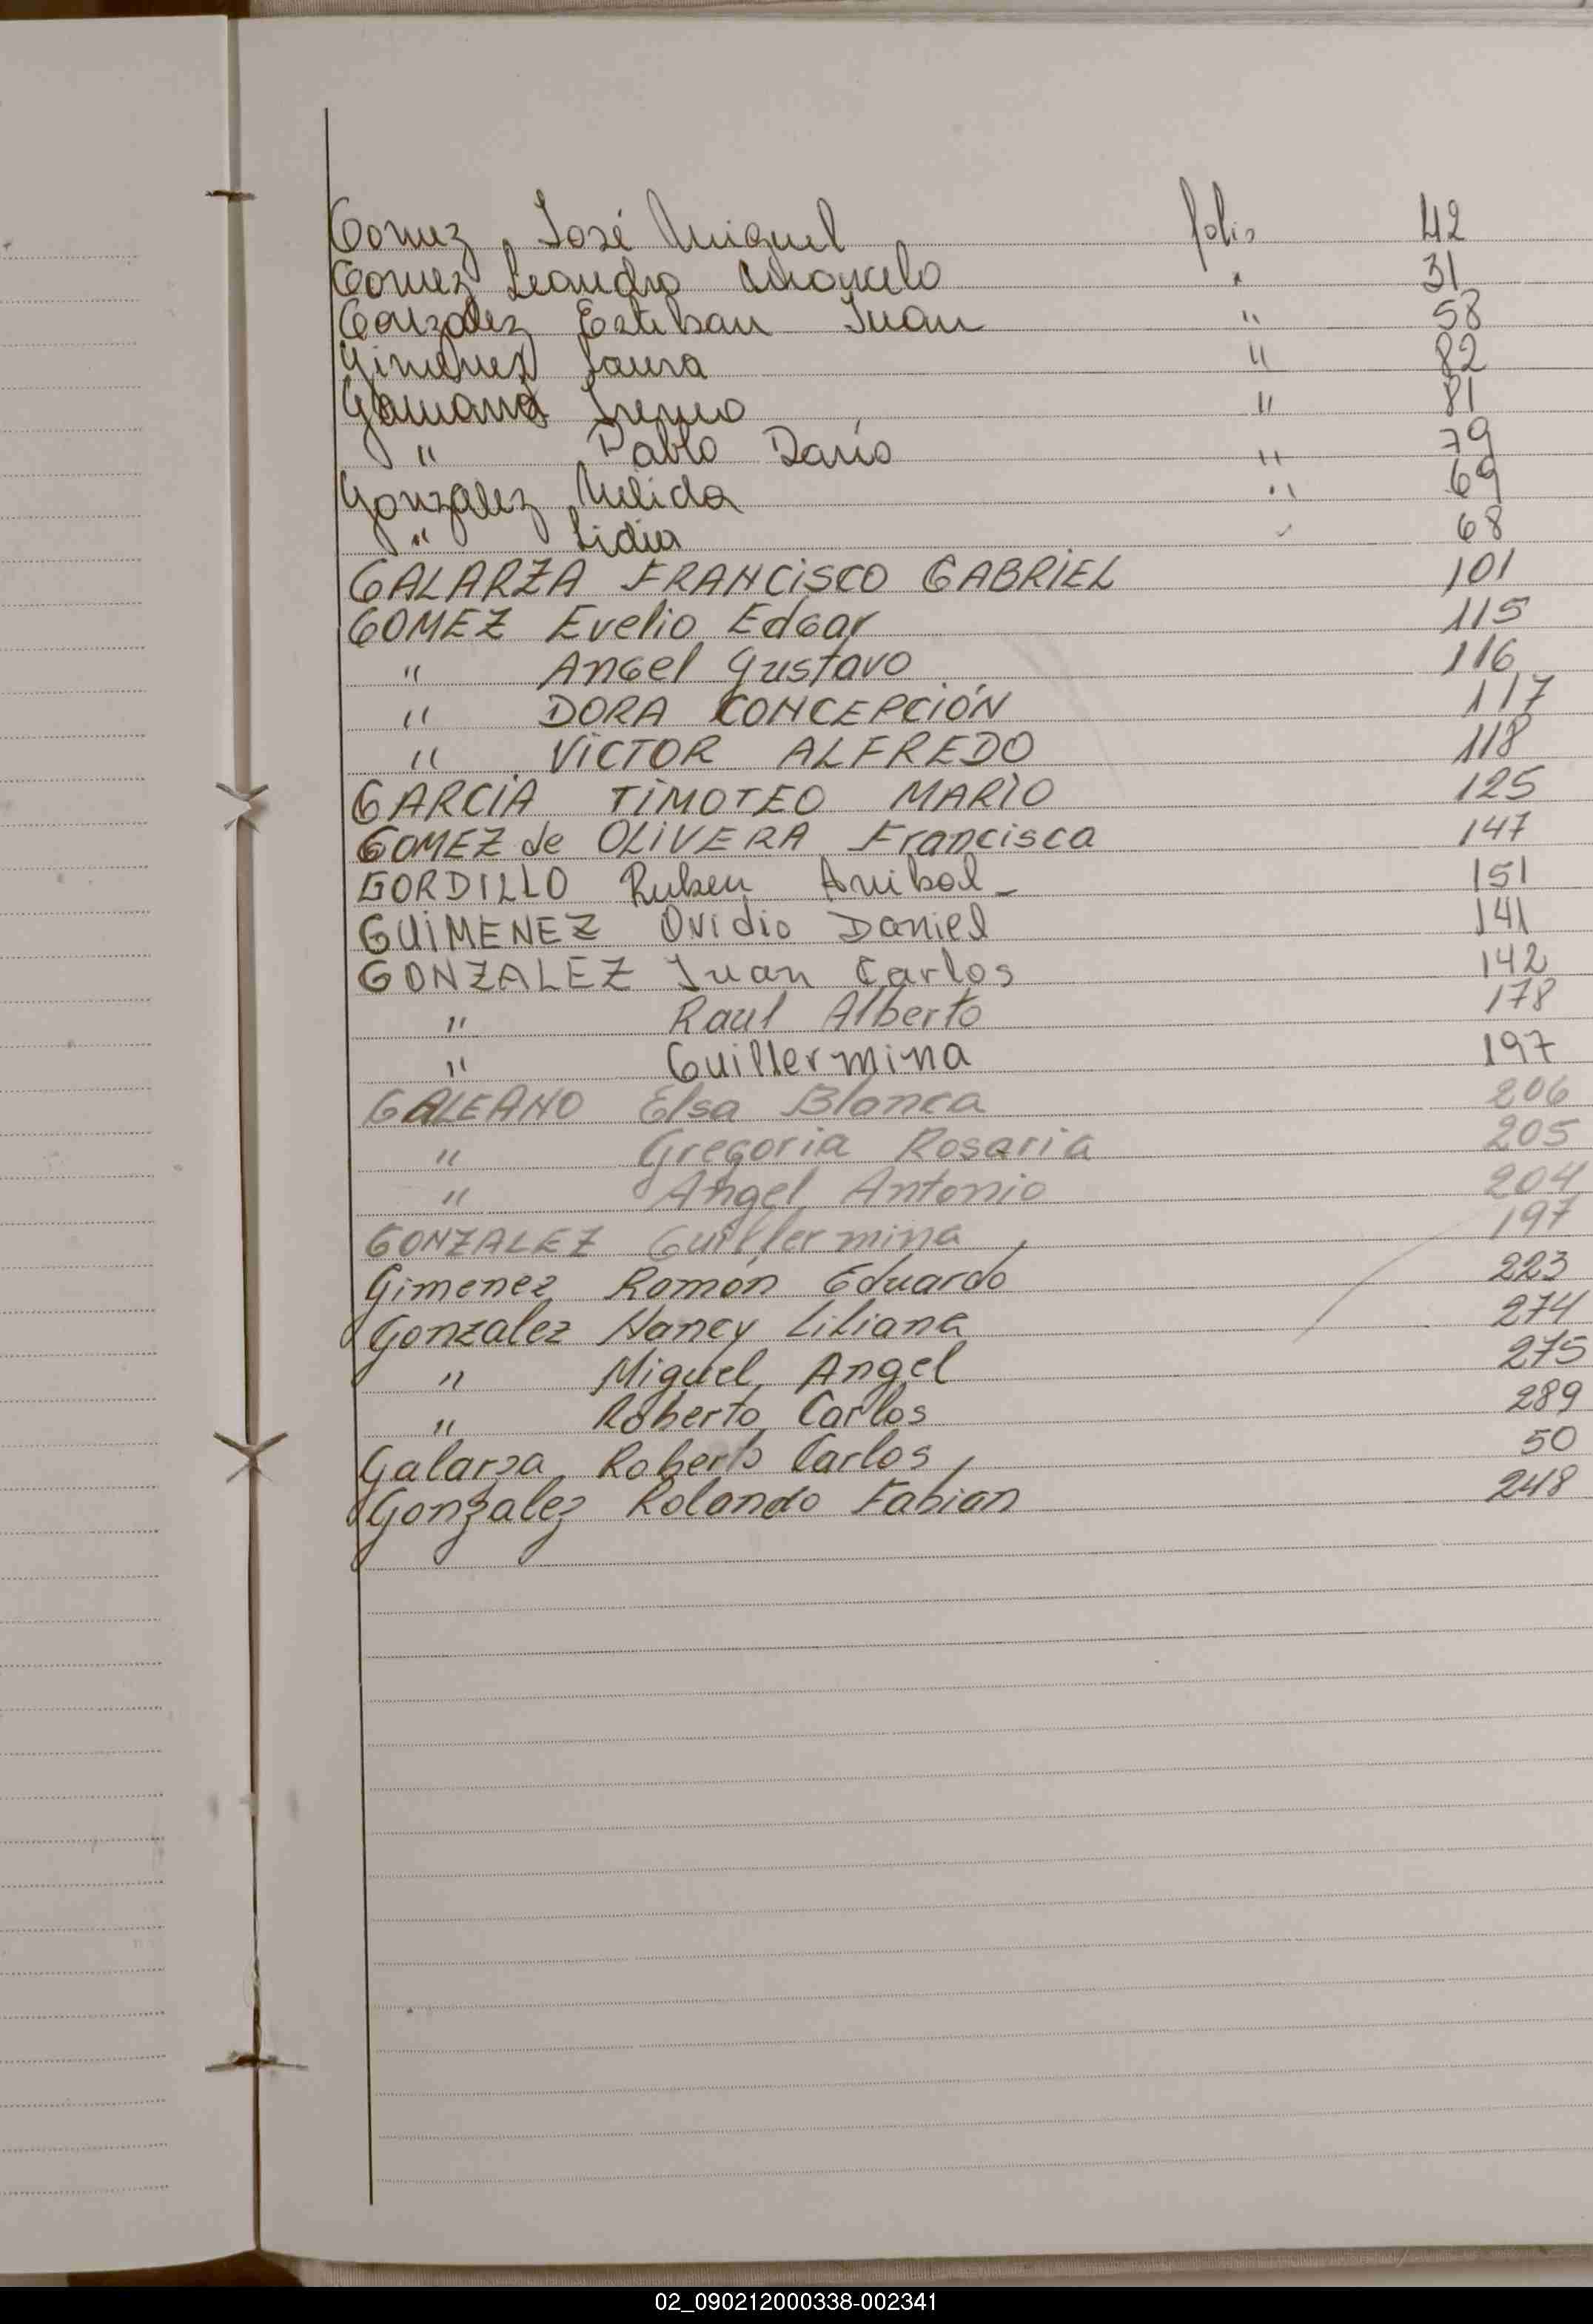 Gomez José Miguel folio 42
Gomez Leandro Marcelo " 31
Gonzalez Esteban Juan " 58
Gimenez Laura " 82
Irineo " 81
" Pablo Darío " 79
Gonzalez Nelida " 69
" Lidia " 68
GALARZA FRANCISCO GABRIEL 101
GOMEZ Evelio Edgar 115
" Angel Gustavo 116
" DORA CONCEPCIÓN 117
" VICTOR ALFREDO 118
GARCIA TIMOTEO MARIO 125
GOMEZ de OLIVERA Francisca 147
GORDILLO Ruben Anibal - 151
GUIMENEZ Ovidio Daniel 141
GONZALEZ Juan Carlos 142
" Raul Alberto 178
" Guillermina 197
GALEANO Elsa Blanca 206
" Gregoria Rosaria 205
" Angel Antonio 204
GONZALEZ Guillermina 197
Gimenez Ramón Eduardo 223
Gonzalez Nancy Liliana 274
" Miguel Angel 275
" Roberto Carlos 289
Galarza Roberto Carlos 50
Gonzalez Rolando Fabián 248
02_090212000338-002341